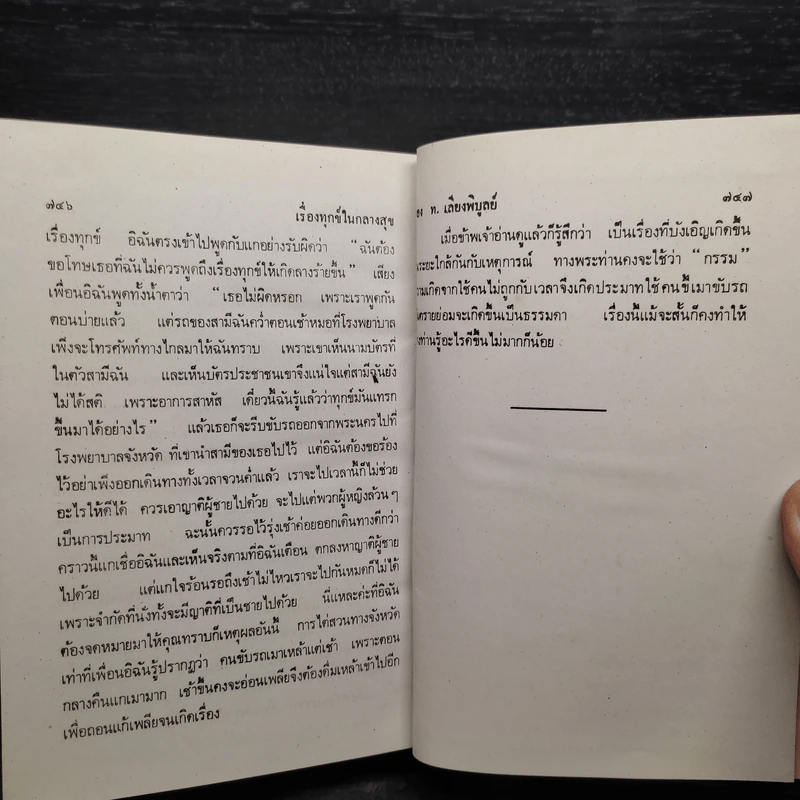 ๗๔๖
เรื่องทุกข์ในกลางสุข
เรื่องทุกข์ อิฉันตรงเข้าไปพูดกับแกอย่างรับผิดว่า “ฉันต้อง
ขอโทษเธอที่ฉันไม่ควรพูดถึงเรื่องทุกข์ให้เกิดลางร้ายขึ้น” เสียง
เพื่อนอิฉันพูดทั้งน้ำตาว่า “เธอไม่ผิดหรอก เพราะเราพูดกัน
ตอนบ่ายแล้ว แต่รถของสามีฉันคว่ำตอนเช้าหมอที่โรงพยาบาล
เพิ่งจะโทรศัพท์ทางไกลมาให้ฉันทราบ เพราะเขาเห็นนามบัตรที่
ในตัวสามีฉัน และเห็นบัตรประชาชนเขาจึงแน่ใจแต่สามีฉันยัง
ไม่ได้สติ เพราะอาการสาหัส เดี๋ยวนี้ฉันรู้แล้วว่าทุกข์มันแทรก
ขึ้นมาได้อย่างไร” แล้วเธอก็จะรีบขับรถออกจากพระนครไปที่
โรงพยาบาลจังหวัด ที่เขานำสามีของเธอไปไว้ แต่อิฉันต้องขอร้อง
ไว้อย่าเพิ่งออกเดินทางทั้งเวลาจวนค่ำแล้ว เราจะไปเวลานี้ก็ไม่ช่วย
อะไรให้ดีได้ ควรเอาญาติผู้ชายไปด้วย จะไปแต่พวกผู้หญิงล้วนๆ
เป็นการประมาท ฉะนั้นควรรอไว้รุ่งเช้าค่อยออกเดินทางดีกว่า
คราวนี้แกเชื่ออิฉันและเห็นจริงตามที่อิฉันเตือน ตกลงหาญาติผู้ชาย
ไปด้วย แต่แกใจร้อนรอถึงเช้าไม่ไหวเราจะไปกันหมดก็ไม่ได้
เพราะจำกัดที่นั่งทั้งจะมีญาติที่เป็นชายไปด้วย นี่แหละค่ะที่อิฉัน
ต้องจดหมายมาให้คุณทราบก็เหตุผลอันนี้ การไต่สวนทางจังหวัด
เท่าที่เพื่อนอิฉันรู้ปรากฏว่า คนขับรถเมาเหล้าแต่เช้า เพราะตอน
กลางคืนแกเมามาก เช้าขึ้นคงจะอ่อนเพลียจึงต้องดื่มเหล้าเข้าไปอีก
เพื่อถอนแก้เพลียจนเกิดเรื่อง
ท. เลียงพิบูลย์
๗๔๗
เมื่อข้าพเจ้าอ่านดูแล้วก็รู้สึกว่า เป็นเรื่องที่บังเอิญเกิดขึ้น
ระยะใกล้กันกับเหตุการณ์ ทางพระท่านคงจะใช้ว่า “กรรม”
เกิดจากใช้คนไม่ถูกกับเวลาจึงเกิดประมาทใช้คนขี้เมาขับรถ
ย่อมจะเกิดขึ้นเป็นธรรมดา เรื่องนี้แม้จะสั้นก็คงทำให้
ท่านรู้อะไรดีขึ้นไม่มากก็น้อย